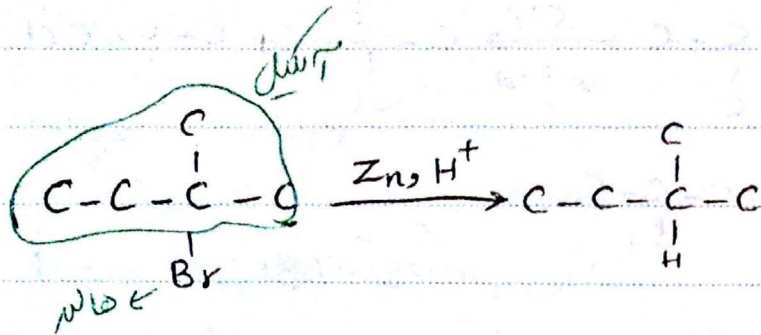 آلکیل
C
C – C – C – C
Br
هالو
Zn, H⁺
C
C – C – C – C
H